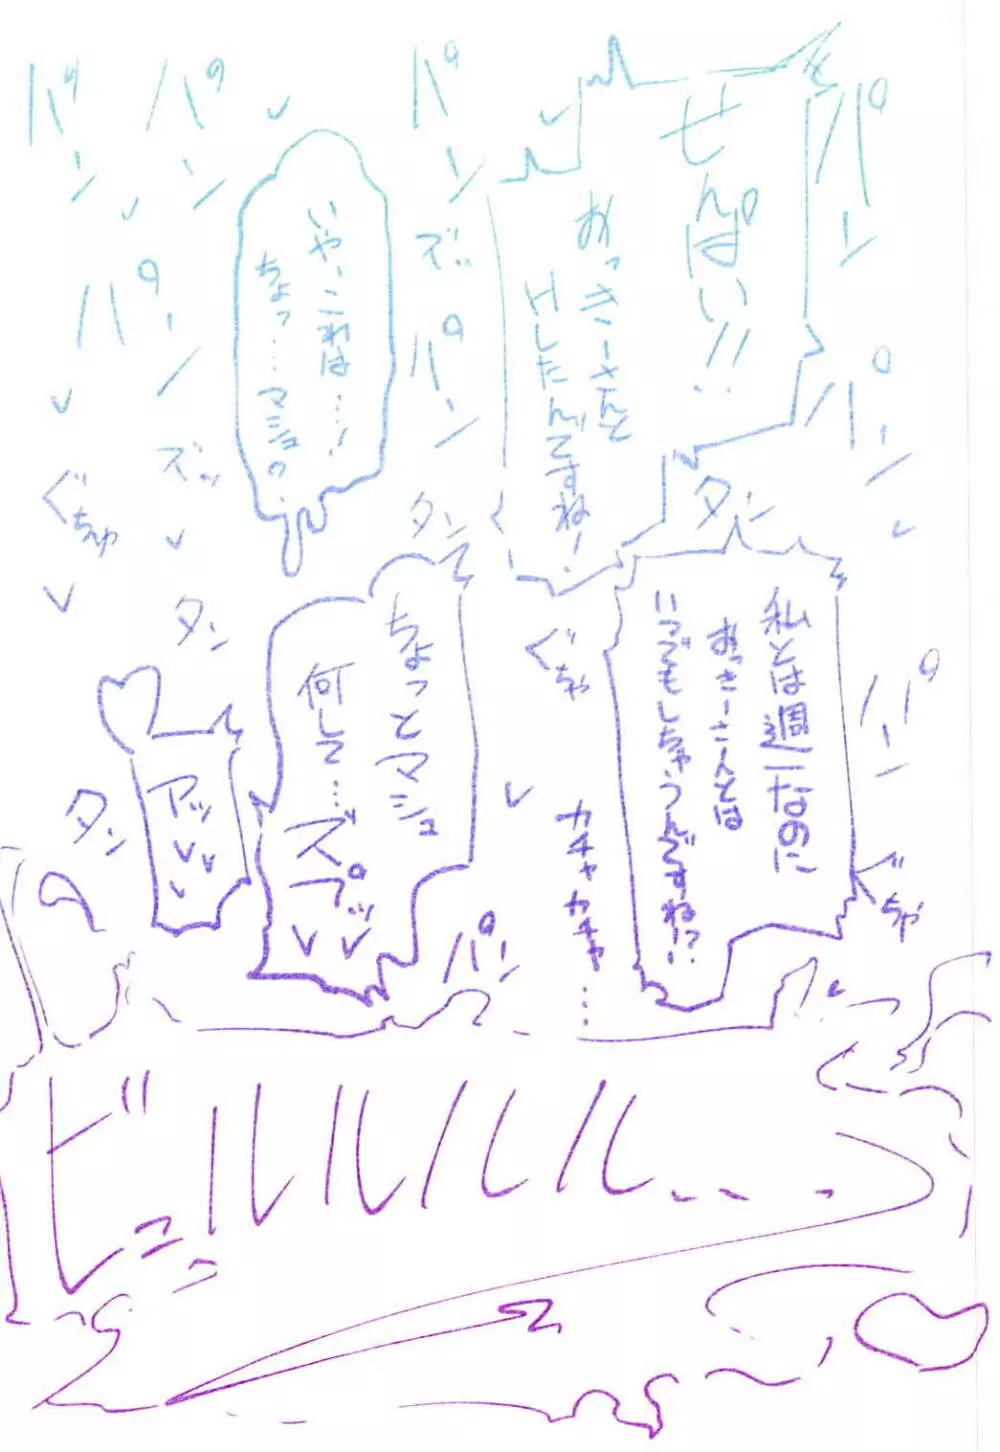 パン
せんぱい!!
おっきーさんと
Hしたんですね!
パン
パン
ズッ
パン
いや、これは…!
ちょっ…マシュ
パン
パン
パン
ズッ
ぐちゅ
タン
タン
私とは週一なのに
おっきーさんとは
いつでもしちゃうんですね!?
パン
ぐちゅ
ぐちゅ
カチャカチャ…
ちょっとマシュ
何して…
ズプッ
タン
アッ
タン
パン
ビュルルルル…